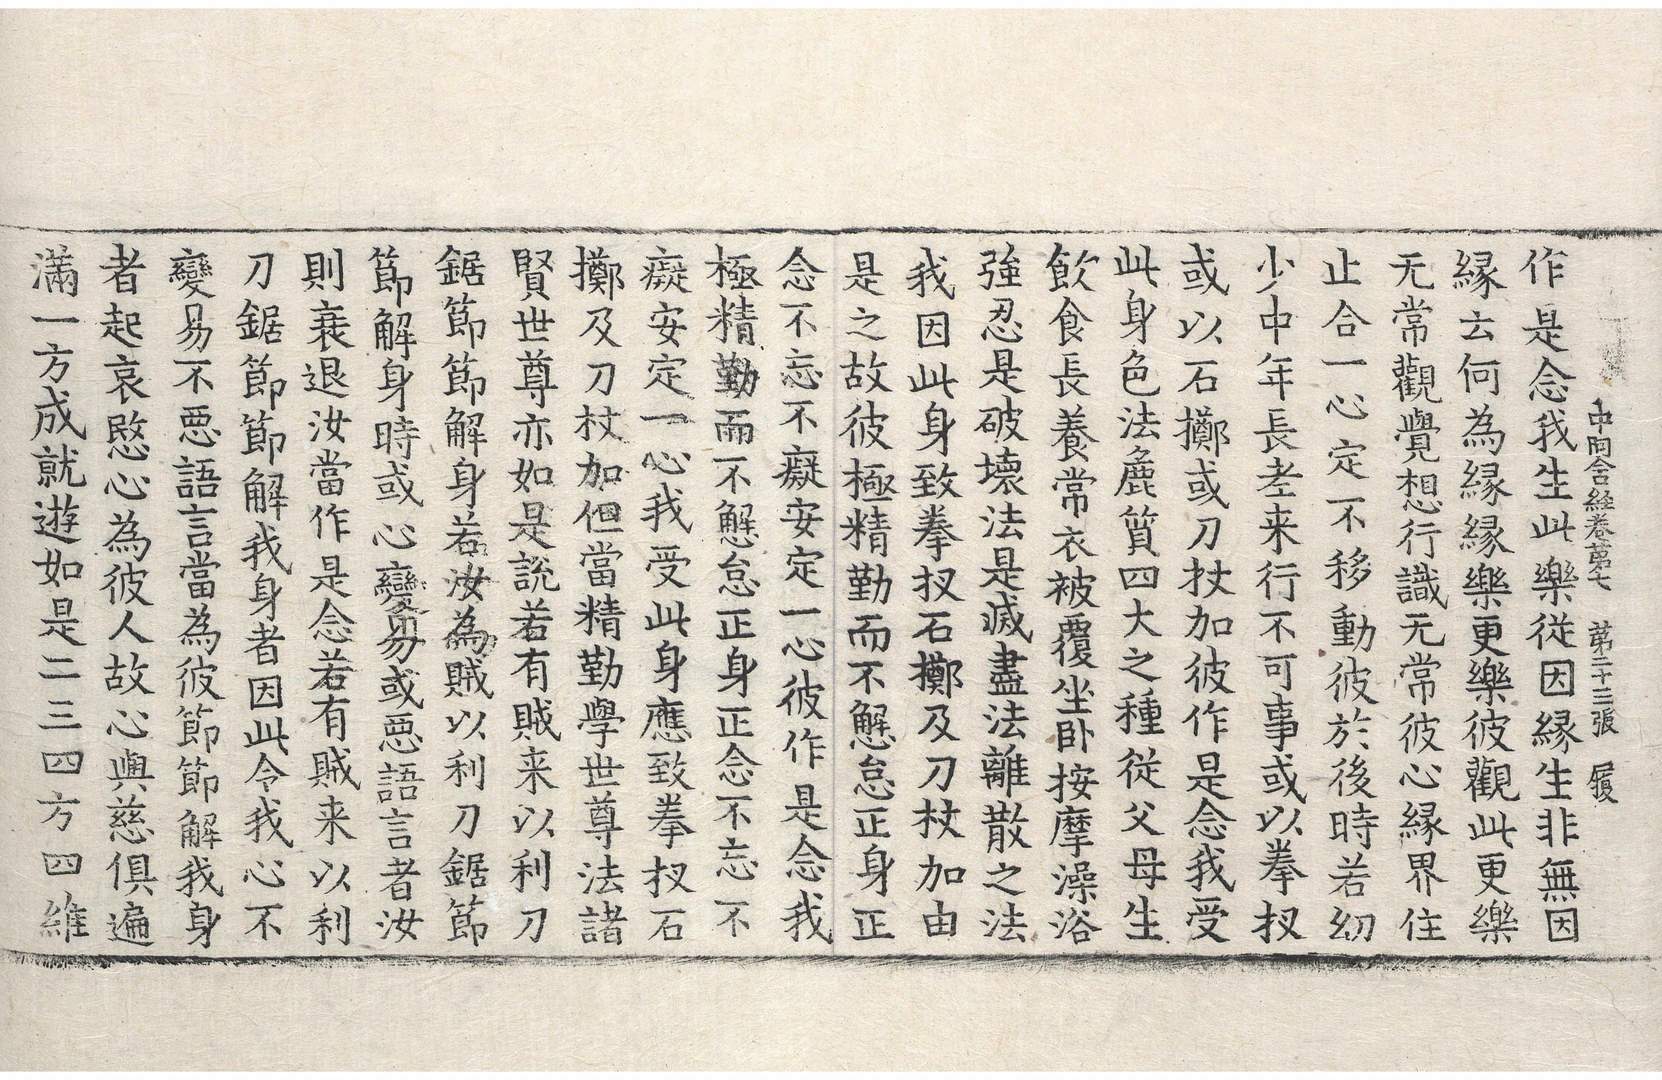 中阿含経卷第七 第二十三張 履
作是念我生此樂從因緣生非無因
緣云何為緣緣樂更樂彼觀此更樂
无常觀覺想行識无常彼心緣界住
止合一心定不移動彼於後時若幼
少中年長老来行不可事或以拳扠
或以石擲或刀杖加彼作是念我受
此身色法麁質四大之種從父母生
飲食長養常衣被覆坐卧按摩澡浴
強忍是破壞法是滅盡法離散之法
我因此身致拳扠石擲及刀杖加由
是之故彼極精勤而不懈怠正身正
念不忘不癡安定一心彼作是念我
極精勤而不懈怠正身正念不忘不
癡安定一心我受此身應致拳扠石
擲及刀杖加但當精勤學世尊法諸
賢世尊亦如是說若有賊来以利刀
鋸節節解身若汝為賊以利刀鋸節
節解身時或心變易或惡語言者汝
則衰退汝當作是念若有賊来以利
刀鋸節節解我身者因此令我心不
變易不惡語言當為彼節節解我身
者起哀愍心為彼人故心與慈俱遍
滿一方成就遊如是二三四方四維